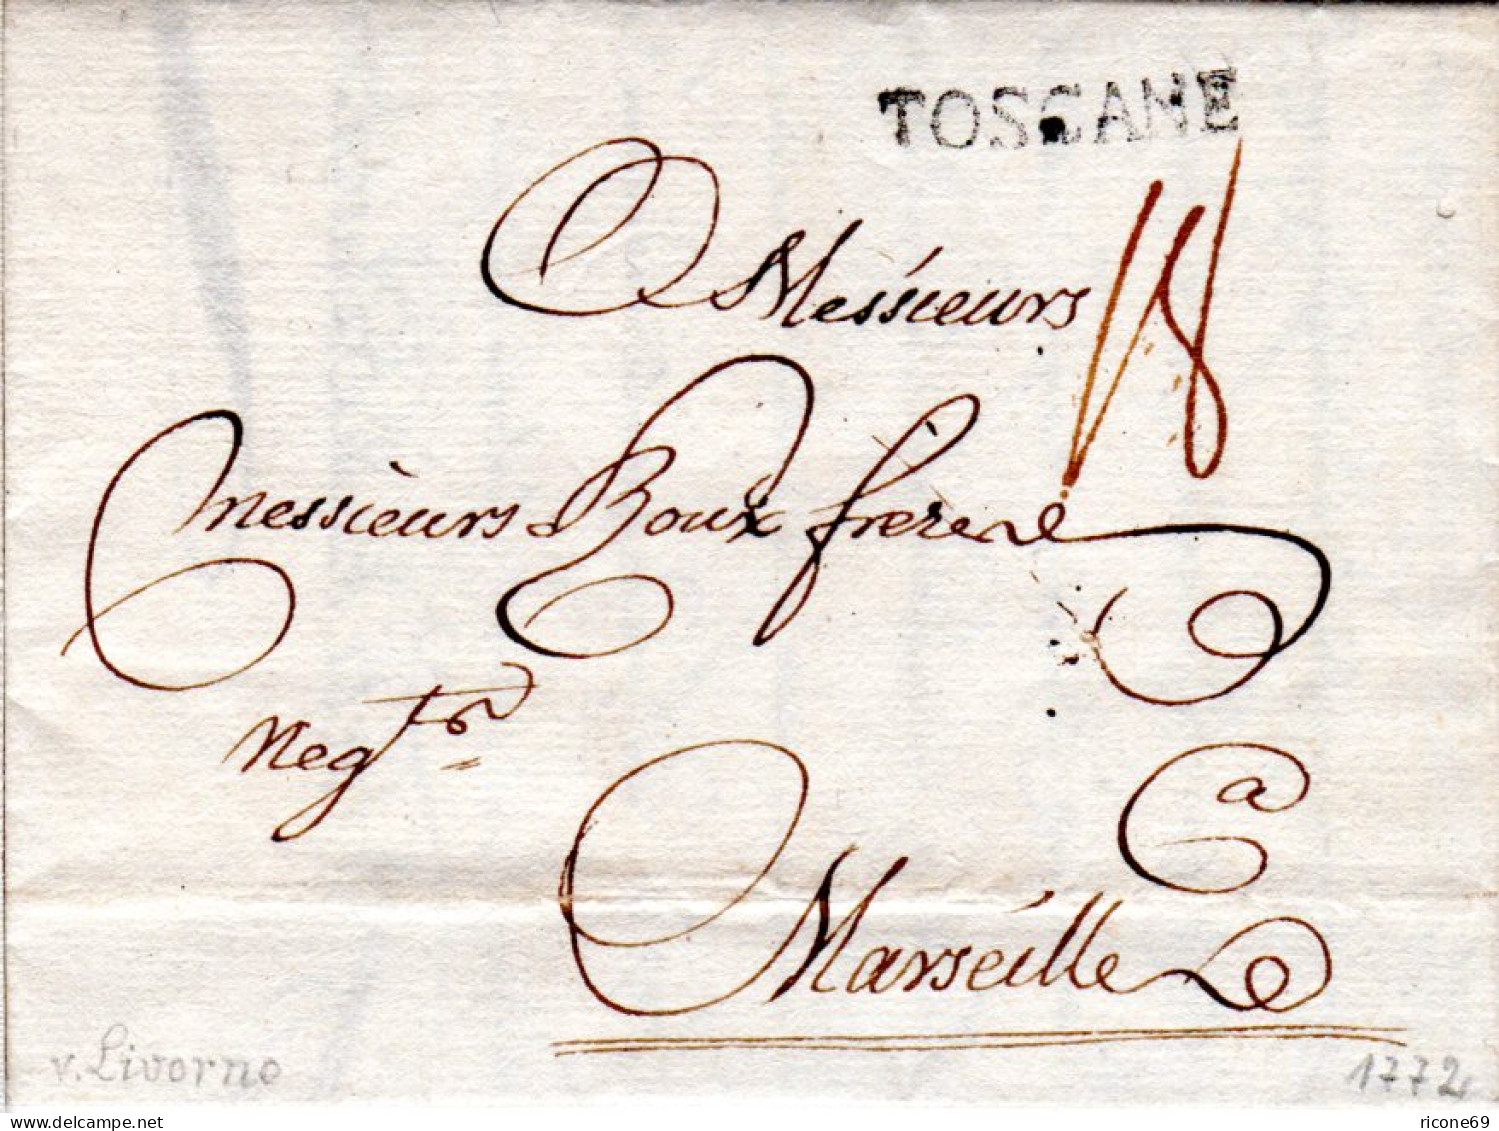 TOSCANE
Messieurs
18
Messieurs Roux frere
Negts
a
Marseille
v. Livorno
1772
www.delcampe.net
ricone69